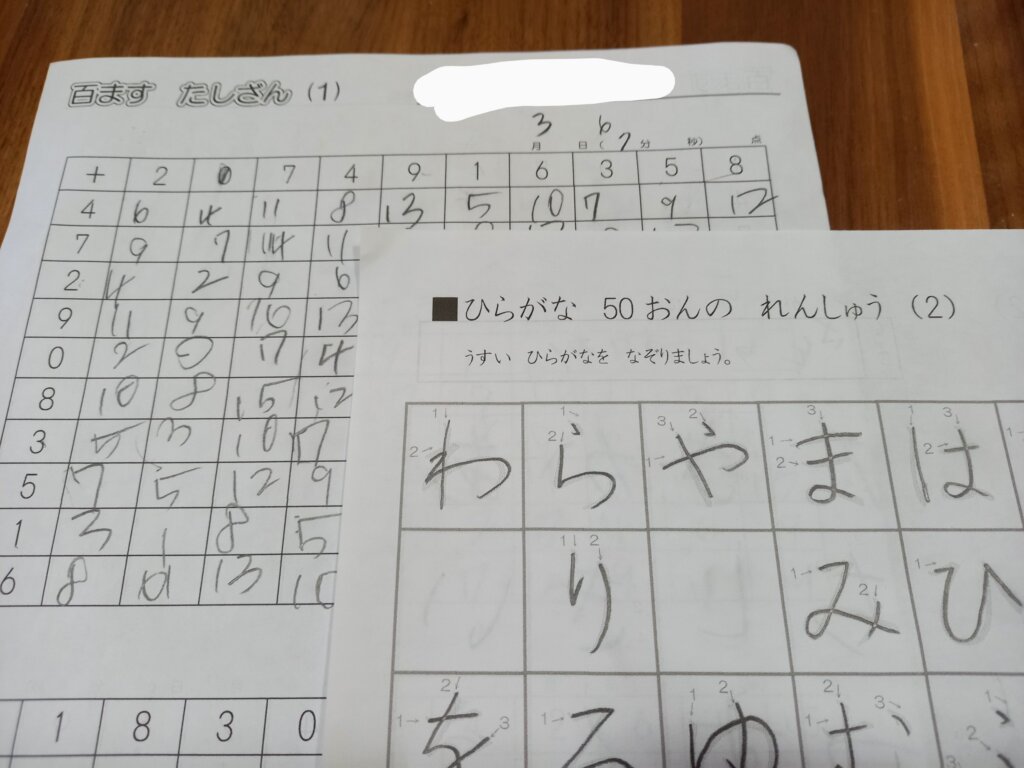 百ます たしざん (1)
3 6
月 日 ( 7 分 秒) 点
+ 2 0 7 4 9 1 6 3 5 8
4 6 4 11 8 13 5 10 7 9 12
7 9 7 14 11
2 4 2 9 6
9 11 9 16 13
0 2 0 7 4
8 10 8 15 12
3 5 3 10 7
5 7 5 12 9
1 3 1 8 5
6 8 13 10
1 8 3 0
■ひらがな 50おんの れんしゅう (2)
うすい ひらがなを なぞりましょう。
わ ら や ま は
り み ひ
を る ゆ む